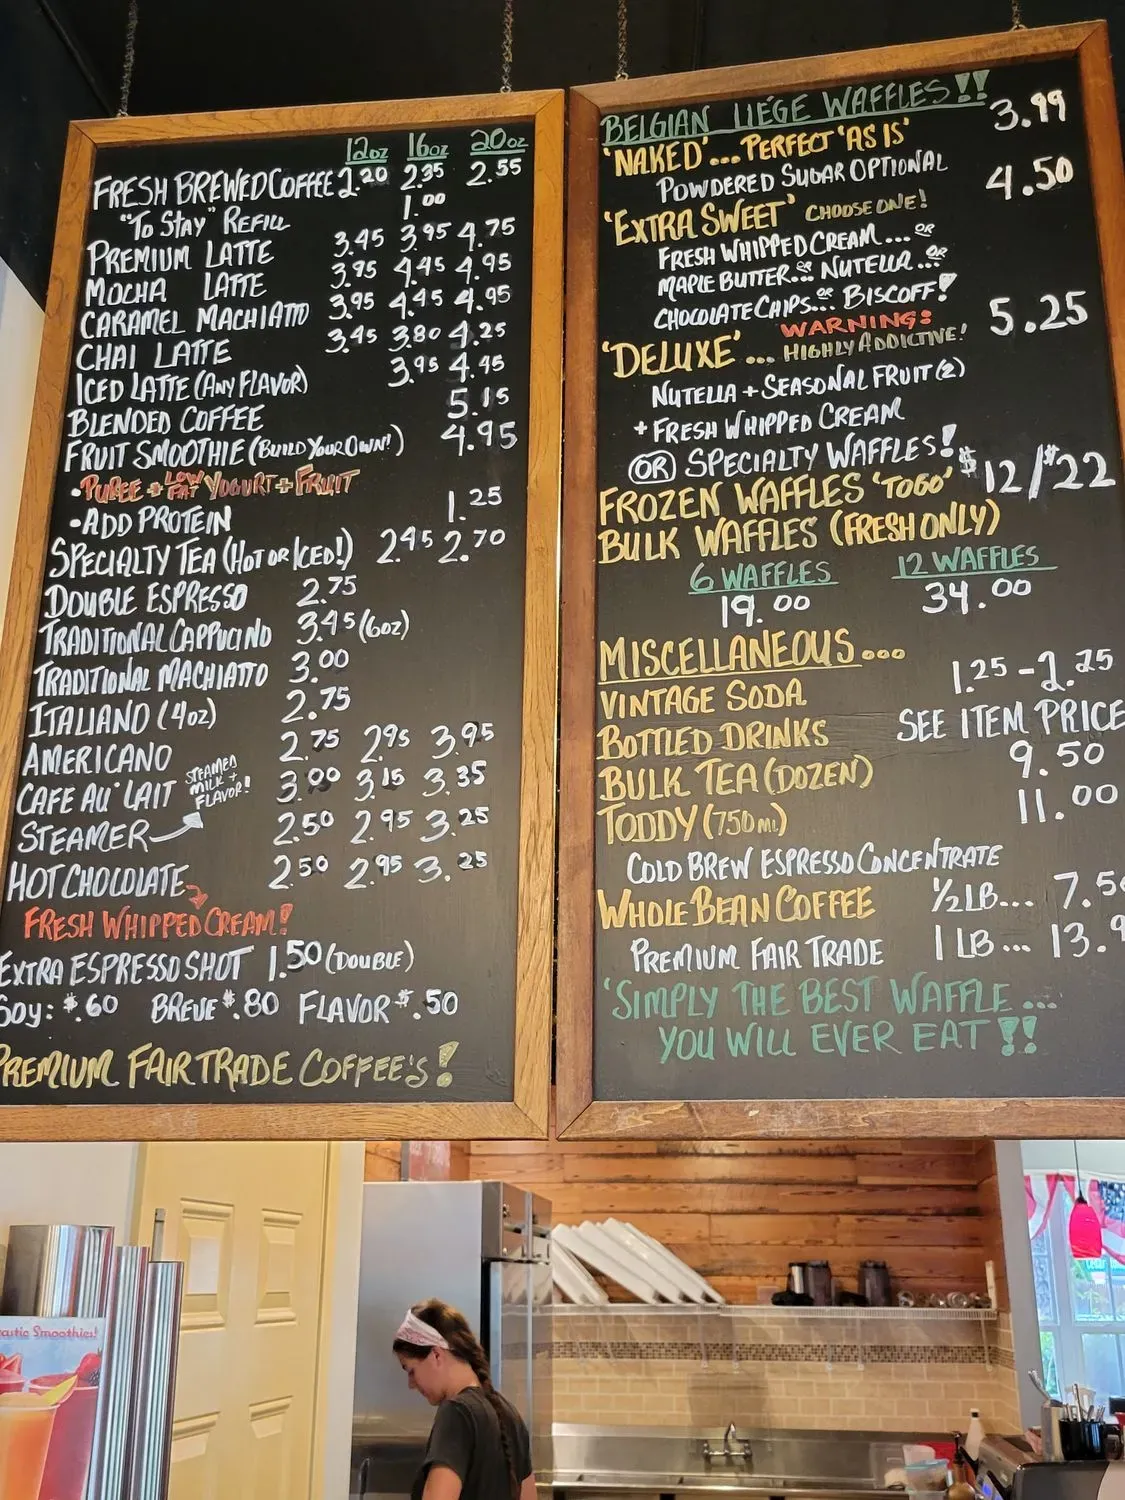 12oz 16oz 20oz
FRESH BREWED COFFEE 2.20 2.35 2.55
"TO STAY" REFILL 1.00
PREMIUM LATTE 3.45 3.95 4.75
MOCHA LATTE 3.95 4.45 4.95
CARAMEL MACHIATTO 3.95 4.45 4.95
CHAI LATTE 3.45 3.80 4.25
ICED LATTE (ANY FLAVOR) 3.95 4.45
BLENDED COFFEE 5.15
FRUIT SMOOTHIE (BUILD YOUR OWN!) 4.95
• PUREE + LOW FAT YOGURT + FRUIT
• ADD PROTEIN 1.25
SPECIALTY TEA (HOT OR ICED!) 2.45 2.70
DOUBLE ESPRESSO 2.75
TRADITIONAL CAPPUCINO 3.45 (6oz)
TRADITIONAL MACHIATTO 3.00
ITALIANO (4oz) 2.75
AMERICANO 2.75 2.95 3.95
CAFE AU LAIT 3.00 3.15 3.35
STEAMED MILK + FLAVOR!
STEAMER 2.50 2.95 3.25
HOT CHOCOLATE 2.50 2.95 3.25
FRESH WHIPPED CREAM!
EXTRA ESPRESSO SHOT 1.50 (DOUBLE)
SOY: $.60 BREVE $.80 FLAVOR $.50
PREMIUM FAIR TRADE COFFEE'S!
BELGIAN LIÉGE WAFFLES!!
'NAKED'... PERFECT 'AS IS' 3.99
POWDERED SUGAR OPTIONAL
'EXTRA SWEET' CHOOSE ONE! 4.50
FRESH WHIPPED CREAM... OR
MAPLE BUTTER... OR NUTELLA... OR
CHOCOLATE CHIPS... OR BISCOFF!
WARNING:
'DELUXE'... HIGHLY ADDICTIVE! 5.25
NUTELLA + SEASONAL FRUIT (2)
+ FRESH WHIPPED CREAM
OR SPECIALTY WAFFLES!
FROZEN WAFFLES 'TOGO' $12/$22
BULK WAFFLES (FRESH ONLY)
6 WAFFLES 12 WAFFLES
19.00 34.00
MISCELLANEOUS...
VINTAGE SODA 1.25-2.25
BOTTLED DRINKS SEE ITEM PRICE
BULK TEA (DOZEN) 9.50
TODDY (750ml) 11.00
COLD BREW ESPRESSO CONCENTRATE
WHOLE BEAN COFFEE 1/2 LB... 7.5
PREMIUM FAIR TRADE 1 LB... 13.9
'SIMPLY THE BEST WAFFLE...
YOU WILL EVER EAT!!
Smoothies!